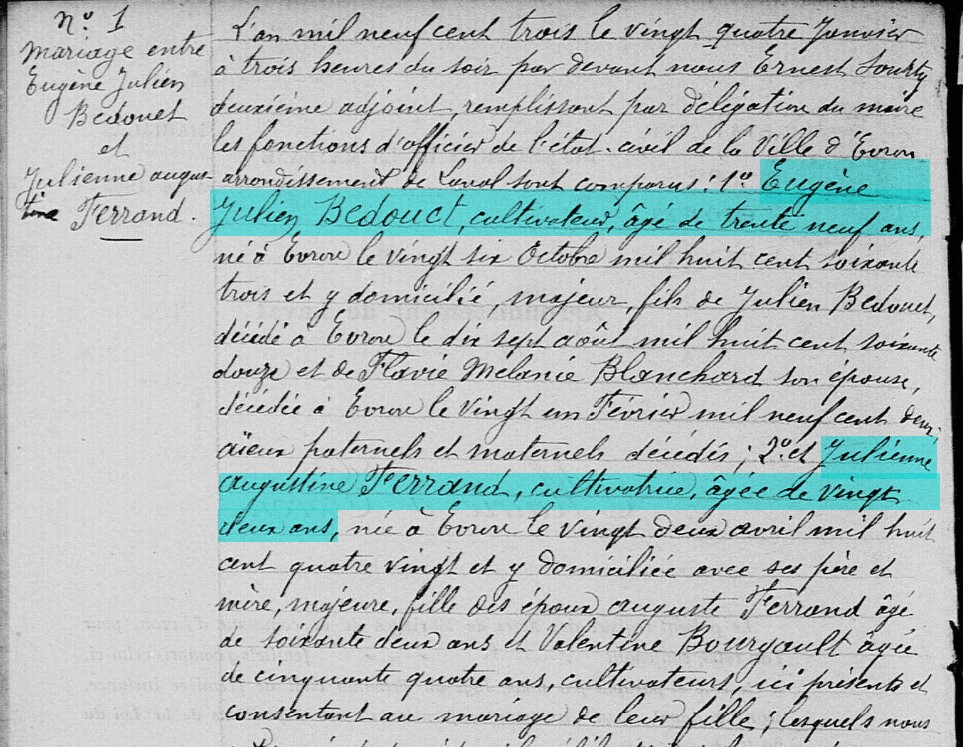 N° 1
Mariage entre
Eugène Julien
Bedouet
et
Julienne augus-
tine Ferrand.
L'an mil neuf cent trois le vingt quatre Janvier
à trois heures du soir par devant nous Ernest Sourty
deuxième adjoint, remplissant par délégation du maire
les fonctions d'officier de l'état-civil de la Ville d'Evron
arrondissement de Laval sont comparus : 1° Eugène
Julien Bedouet, cultivateur, âgé de trente neuf ans,
né à Evron le vingt six Octobre mil huit cent soixante
trois et y domicilié, majeur, fils de Julien Bedouet,
décédé à Evron le dix sept août mil huit cent soixante
douze et de Flavie Melanie Blanchard son épouse,
décédée à Evron le vingt un Février mil neuf cent deux,
aïeux paternels et maternels décédés ; 2° et Julienne
augustine Ferrand, cultivatrice, âgée de vingt
deux ans, née à Evron le vingt deux avril mil huit
cent quatre vingt et y domiciliée avec ses père et
mère, majeure, fille des époux auguste Ferrand âgé
de soixante deux ans et Valentine Bourgault âgée
de cinquante quatre ans, cultivateurs, ici présents et
consentant au mariage de leur fille ; lesquels nous